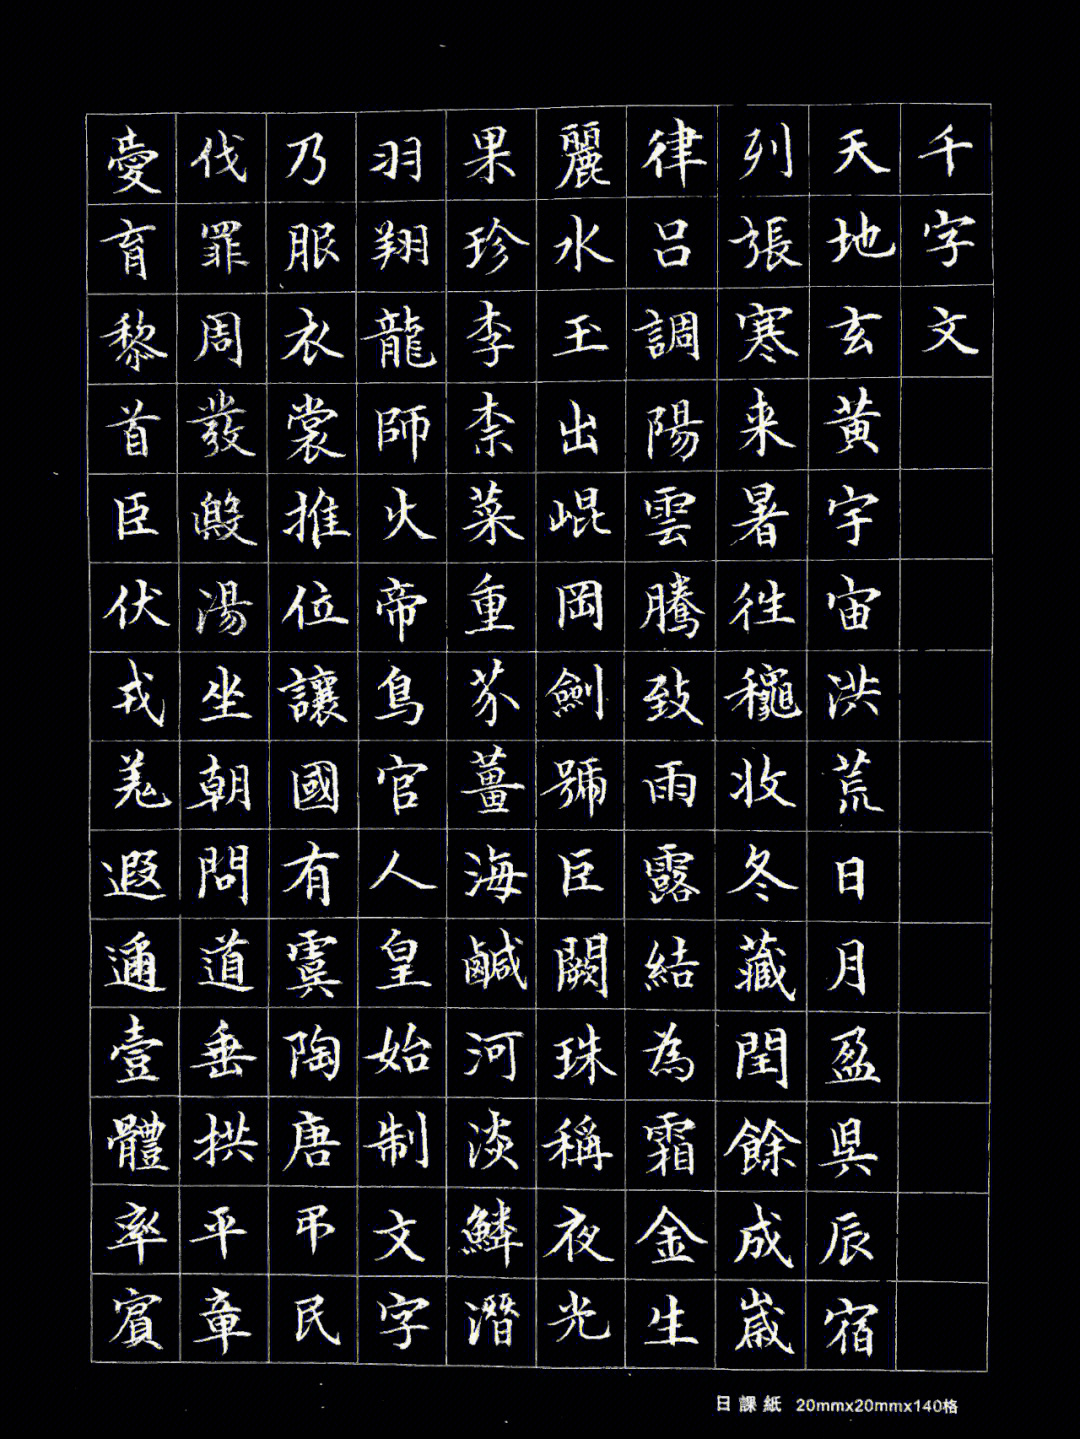 千字文
天地玄黃宇宙洪荒日月盈昃辰宿
列張寒来暑往穐收冬藏閏餘成歲
律呂調陽雲騰致雨露結為霜金生
麗水玉出崐岡劍號巨闕珠稱夜光
果珍李柰菜重芥薑海鹹河淡鱗潛
羽翔龍師火帝鳥官人皇始制文字
乃服衣裳推位讓國有虞陶唐弔民
伐罪周發殷湯坐朝問道垂拱平章
愛育黎首臣伏戎羌遐邇壹體率賓
日課紙 20mmx20mmx140格